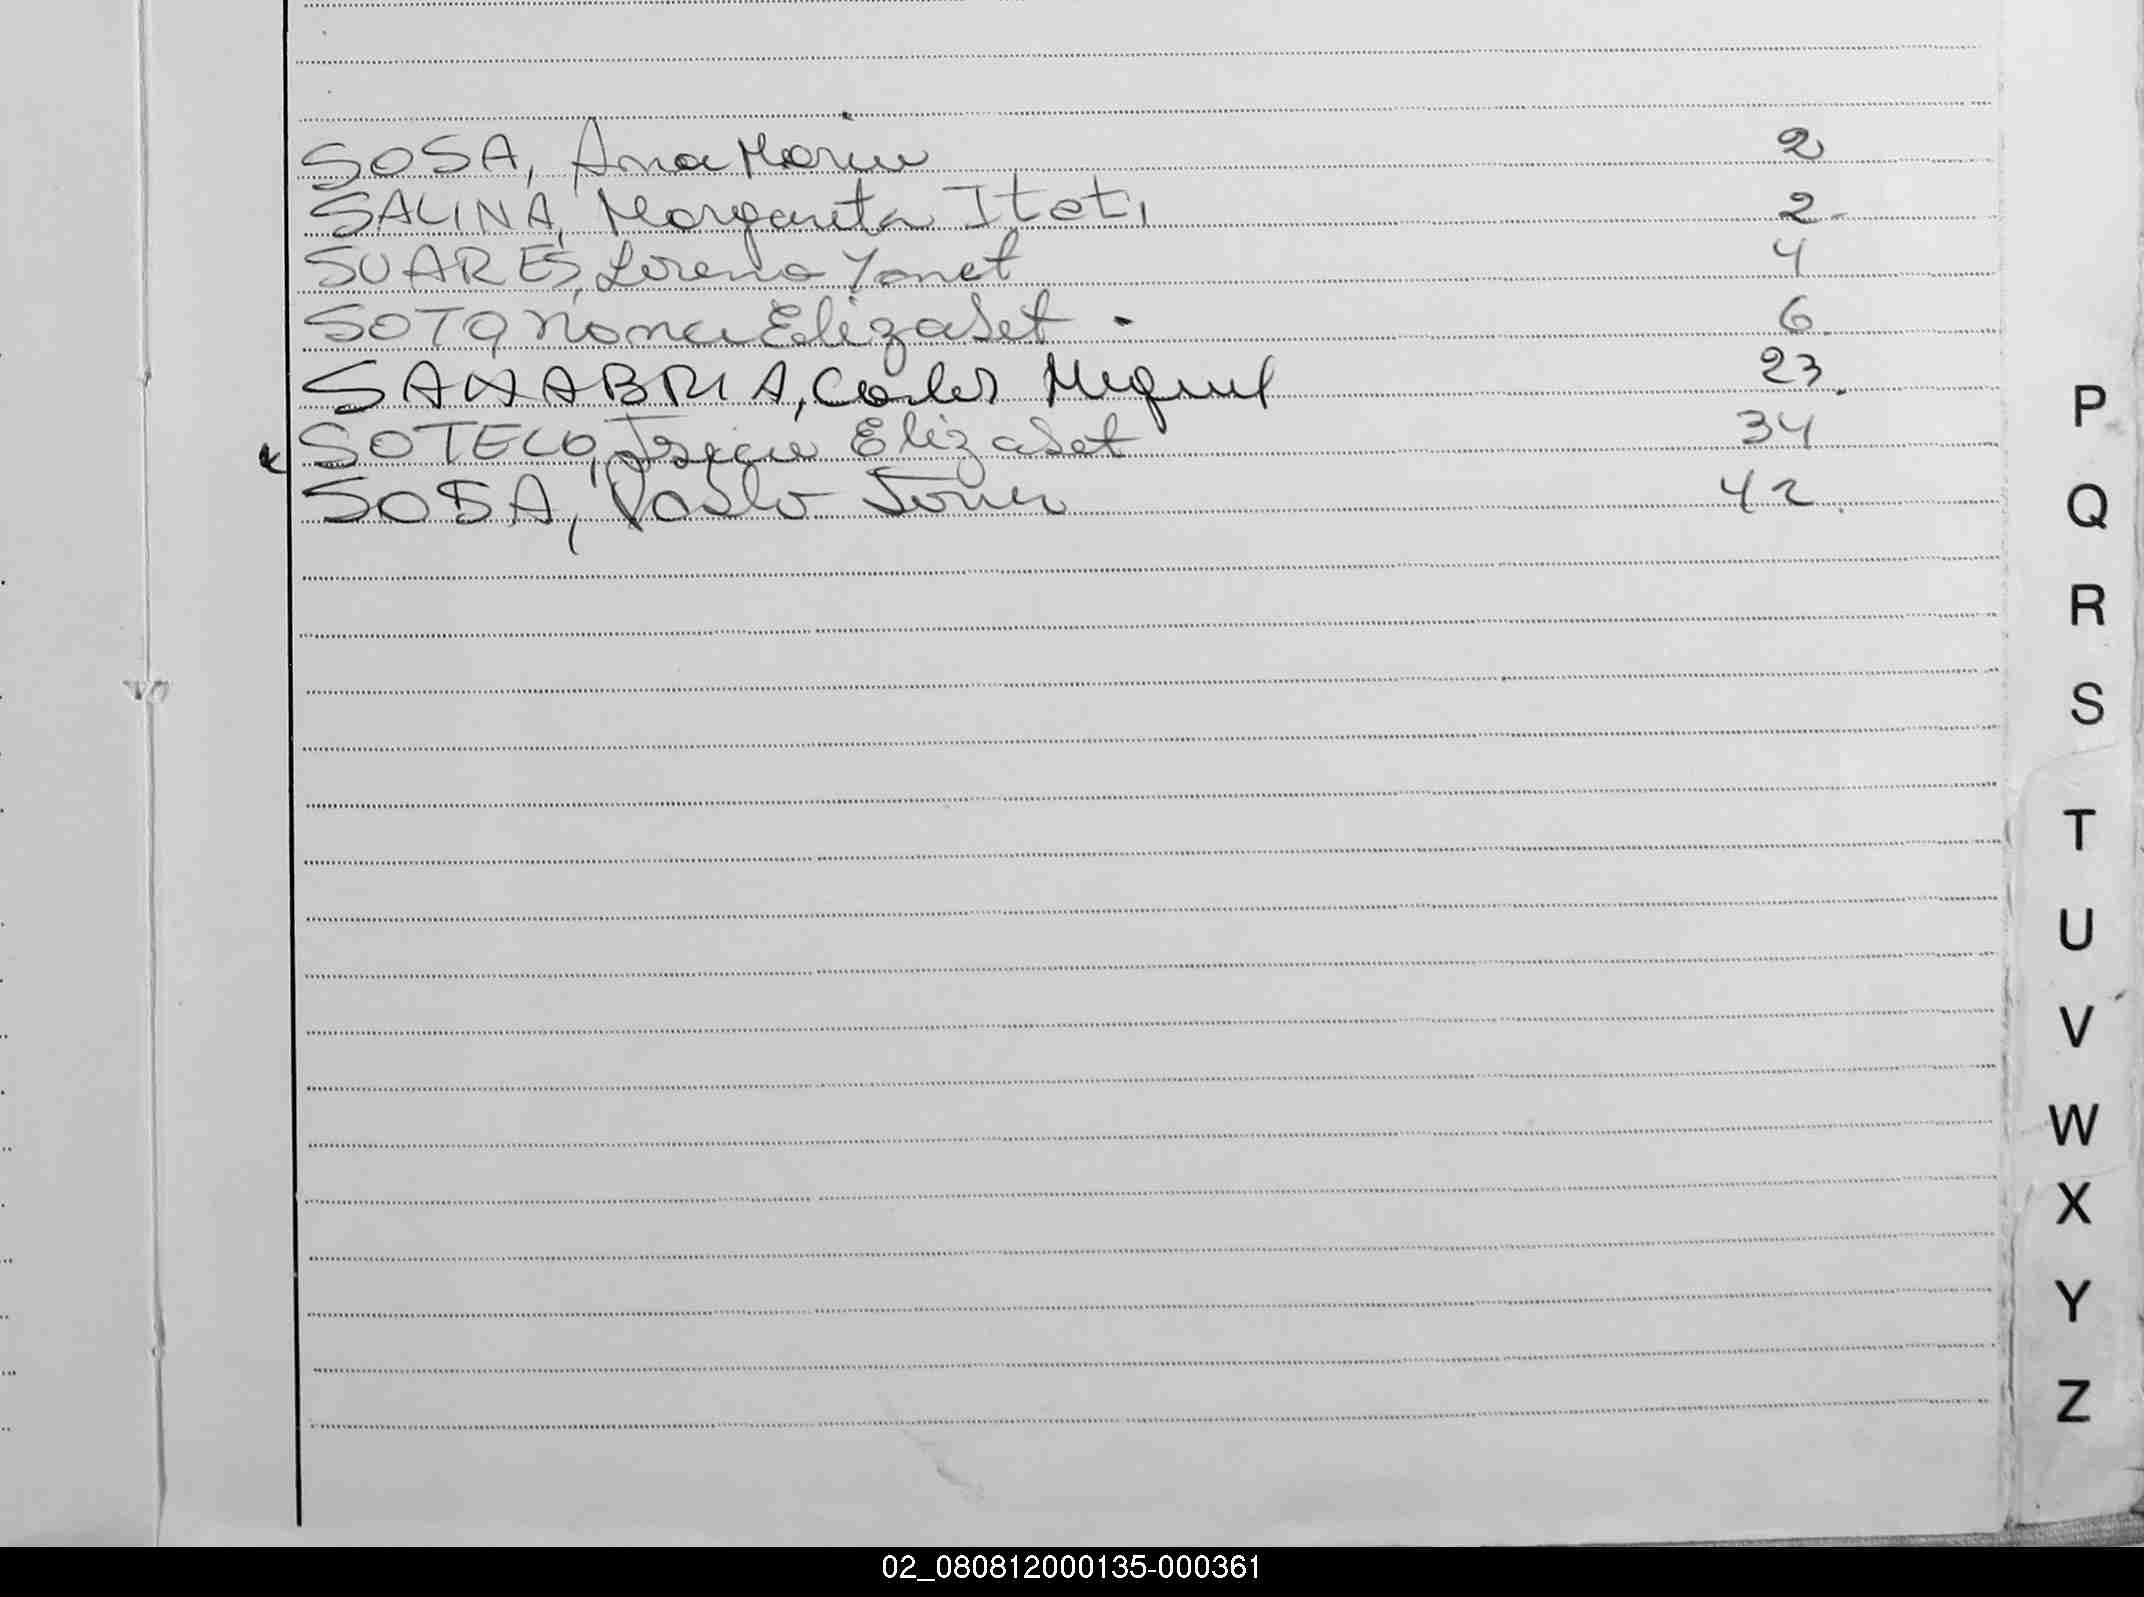 SOSA, Ana Maria 2
SALINA, Margarita Itati 2
SUARES, Lorena Yanet 4
SOTO Elizabet 6
SANABRIA, Carlos Miguel 23
SOTELO, Elizabet 34
SOSA, Pablo Javier 42
P
Q
R
S
T
U
V
W
X
Y
Z
02_080812000135-000361